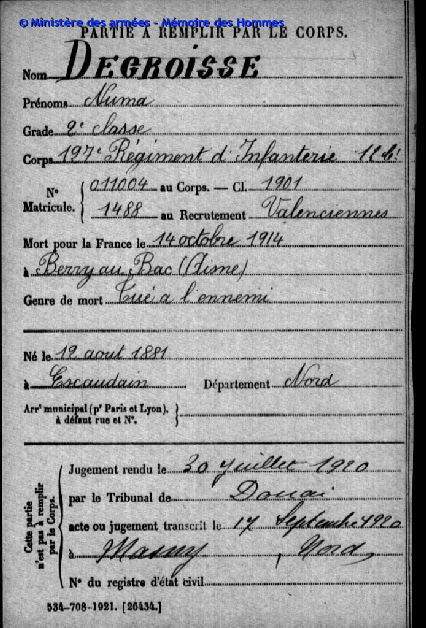 © Ministère des armées - Mémoire des Hommes
PARTIE À REMPLIR PAR LE CORPS.
Nom DEGROISSE
Prénoms Numa
Grade 2e classe
Corps 127e Régiment d'Infanterie
N° Matricule. { 011004 au Corps. — Cl. 1901
1488 au Recrutement Valenciennes
Mort pour la France le 14 octobre 1914
à Berry au Bac (Aisne)
Genre de mort Tué à l'ennemi
Né le 12 aout 1881
à Escaudain Département Nord
Arrt municipal (pr Paris et Lyon), }
à défaut rue et N°.
Cette partie n'est pas à remplir par le Corps.
Jugement rendu le 30 Juillet 1920
par le Tribunal de Douai
acte ou jugement transcrit le 17 Septembre 1920
à Masny, Nord,
N° du registre d'état civil
534-708-1921. [26434.]